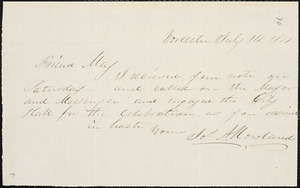 Worcester July 14
Friend May
I received your note on
Saturday — and called on the Mayor
and Messenger and engaged the City
Hall for the Celebration, as you
in haste Yours
Jos. A. Howland